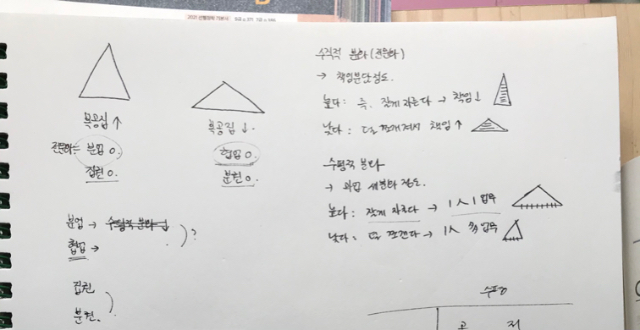 복공짐 ↑
복공짐 ↓.
전문화= 분업 O.
집권 O.
협업 O.
분권 O.
분업 → 수평적 분화
협업 →
)?
집권
분권.
수직적 분화 (전문화)
→ 책임분담정도.
높다: 즉, 잘게 자른다 → 책임↓
낮다: 덜 쪼개져서 책임↑
수평적 분화
→ 과업 세분화 정도.
높다: 잘게 자른다 → 1人 1업무
낮다: 덜 쪼갠다 → 1人 多업무
수평